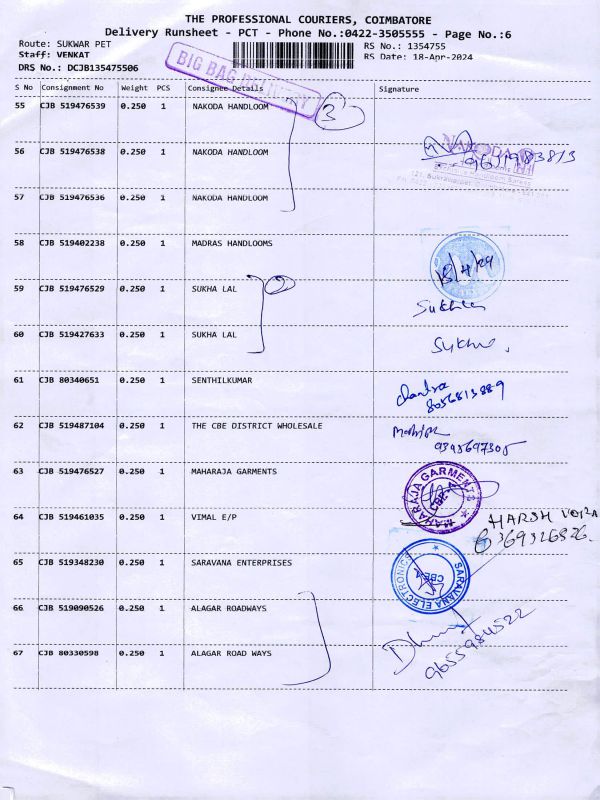 THE PROFESSIONAL COURIERS, COIMBATORE
Delivery Runsheet - PCT - Phone No.:0422-3505555 - Page No.:6
Route: SUKWAR PET
RS No.: 1354755
Staff: VENKAT
RS Date: 18-Apr-2024
DRS No.: DCJB135475506
BIG BAG DELIVERY
S No Consignment No Weight PCS Consignee Details Signature
55 CJB 519476539 0.250 1 NAKODA HANDLOOM 3
56 CJB 519476538 0.250 1 NAKODA HANDLOOM NAKODA
57 CJB 519476536 0.250 1 NAKODA HANDLOOM
58 CJB 519402238 0.250 1 MADRAS HANDLOOMS 18/4/24
59 CJB 519476529 0.250 1 SUKHA LAL
60 CJB 519427633 0.250 1 SUKHA LAL
61 CJB 80340651 0.250 1 SENTHILKUMAR
8056813889
62 CJB 519487104 0.250 1 THE CBE DISTRICT WHOLESALE
9345697305
63 CJB 519476527 0.250 1 MAHARAJA GARMENTS MAHARAJA GARMENTS
64 CJB 519461035 0.250 1 VIMAL E/P HARSH VORA
6369326826.
65 CJB 519348230 0.250 1 SARAVANA ENTERPRISES SARAVANA ELECTRONICS
66 CJB 519090526 0.250 1 ALAGAR ROADWAYS
9655984522
67 CJB 80330598 0.250 1 ALAGAR ROAD WAYS